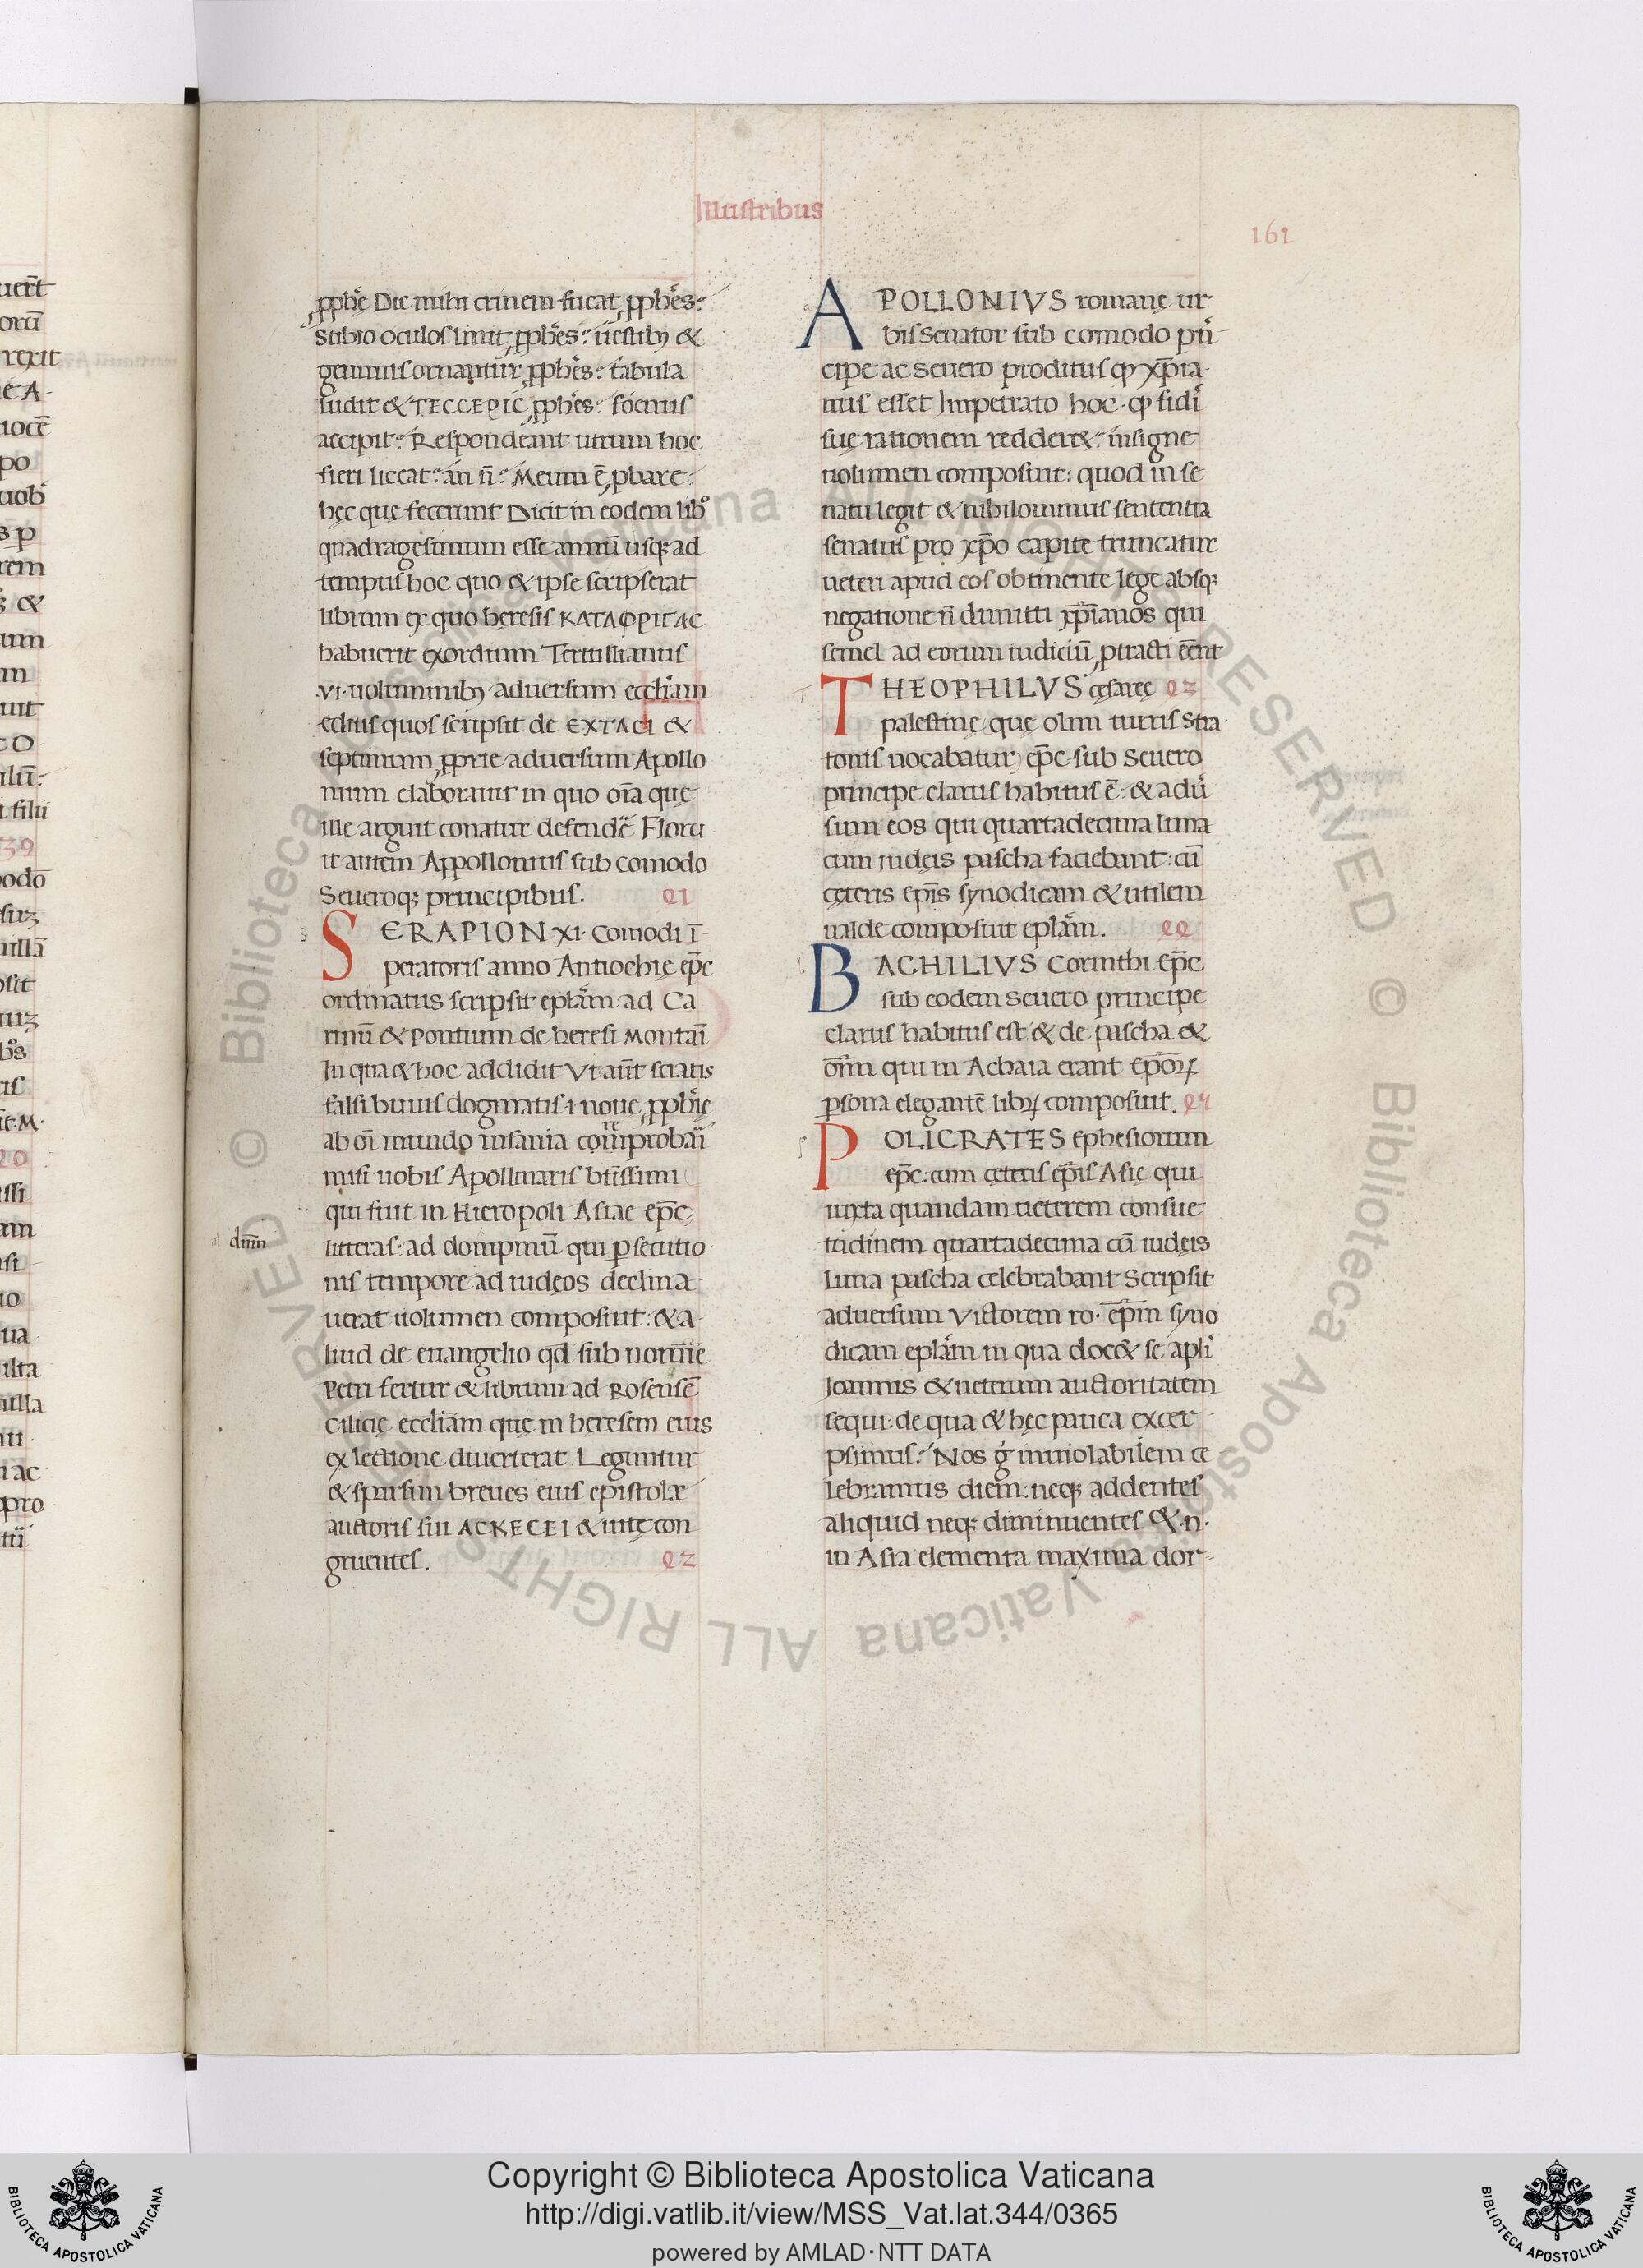 Illustribus
161
ꝓphę Dic mihi crinem fucat ꝓphes:
stibio oculos linit ꝓphes: uestibꝰ &
gemmis ornantur ꝓphes: tabula
ludit & TECCEPIC ꝓphes: foenus
accipit: Respondeant utrum hoc
fieri liceat: an ñ: Meum ē ꝓbare
hęc que fecerunt Dicit in eodem libº
quadragesimum esse annū usq; ad
tempus hoc quo & ipse scripserat
librum ex quo heresis KATAΦPITAC
habuerit exordium Tertullianus
.VI. uoluminibꝰ aduersum eccłiam
editis quos scripsit de EXTACI &
septimum ꝓprie aduersum Apollo
nium elaborauit in quo om̄a quę
ille arguit conatur defendē Floru
it autem Appollonius sub comodo
Seueroq; principibus. 41
SERAPION XI. Comodi ī-
peratoris anno Antiochię ep̄c
ordinatus scripsit epłam ad Ca
rinū & Pontium de heresi Montāi
In qua & hoc addidit Vt aūt sciatis
falsi huius dogmatis i noue ꝓphie
ab oī mundo insania comprobari
misi uobis Apollinaris btīssimi
qui fuit in Hieropoli Asiae ep̄c
litteras: ad dompnū qui ꝑsecutio
dmn̄
nis tempore ad iudęos declina
uerat uolumen composuit: & a
liud de euangelio qđ sub nomīe
Petri fertur & librum ad Rosensē
Cilicię eccłiam quę in heresem eius
ex lectione diuerterat Leguntur
& sparsim breues eius epistolæ
auctoris sui ACKECEI & uitę con
gruentes. 42
APOLLONIVS romanę ur
bis senator sub comodo prī-
cipe ac seuero proditus ꝙ xp̄ia
nus esset Impetrato hoc. ꝙ fidi
suę rationem redder&: insigne
uolumen composuit: quod in se
natu legit & nihilominus sententia
senatus pro xp̄o capite truncatur
ueteri apud eos obtinente lege absq;
negatione ñ dimitti xp̄ianos qui
semel ad eorum iudiciū ꝑtracti eēnt
THEOPHILVS cęsaręę 43
palestinę quę olim turris stra
tonis uocabatur ep̄c sub Seuero
principe clarus habitus ē & adū
sum eos qui quartadecima luna
cum iudęis pascha faciebant: cū
cęteris ep̄is synodicam & utilem
ualde composuit epłam. 44
BACHILIVS Corinthi ep̄c
sub eodem seuero principe
clarus habitus est & de pascha &
om̄m qui in Achaia erant ep̄oꝝ
ꝑsona elegantē libꝝ composuit. 45
POLICRATES ephesiorum
ep̄c: cum ceteris ep̄is Asię qui
iuxta quandam ueterem consue
tudinem quartadecima cū iudęis
Luna pascha celebrabant Scripsit
aduersum Victorem ro. ep̄m syno
dicam epłam in qua doc& se apłi
Ioannis & ueterum auctoritatem
sequi: de qua & hęc pauca excer
psimus: Nos ġ inuiolabilem ce
lebramus diem: neq; addentes
aliquid neq; diminuentes &. n.
in Asia elementa maxima dor-
Copyright © Biblioteca Apostolica Vaticana
http://digi.vatlib.it/view/MSS_Vat.lat.344/0365
powered by AMLAD·NTT DATA
BIBLIOTECA APOSTOLICA VATICANA
BIBLIOTECA APOSTOLICA VATICANA
© Biblioteca Apostolica Vaticana ALL RIGHTS RESERVED © Biblioteca Apostolica Vaticana ALL RIGHTS RESERVED